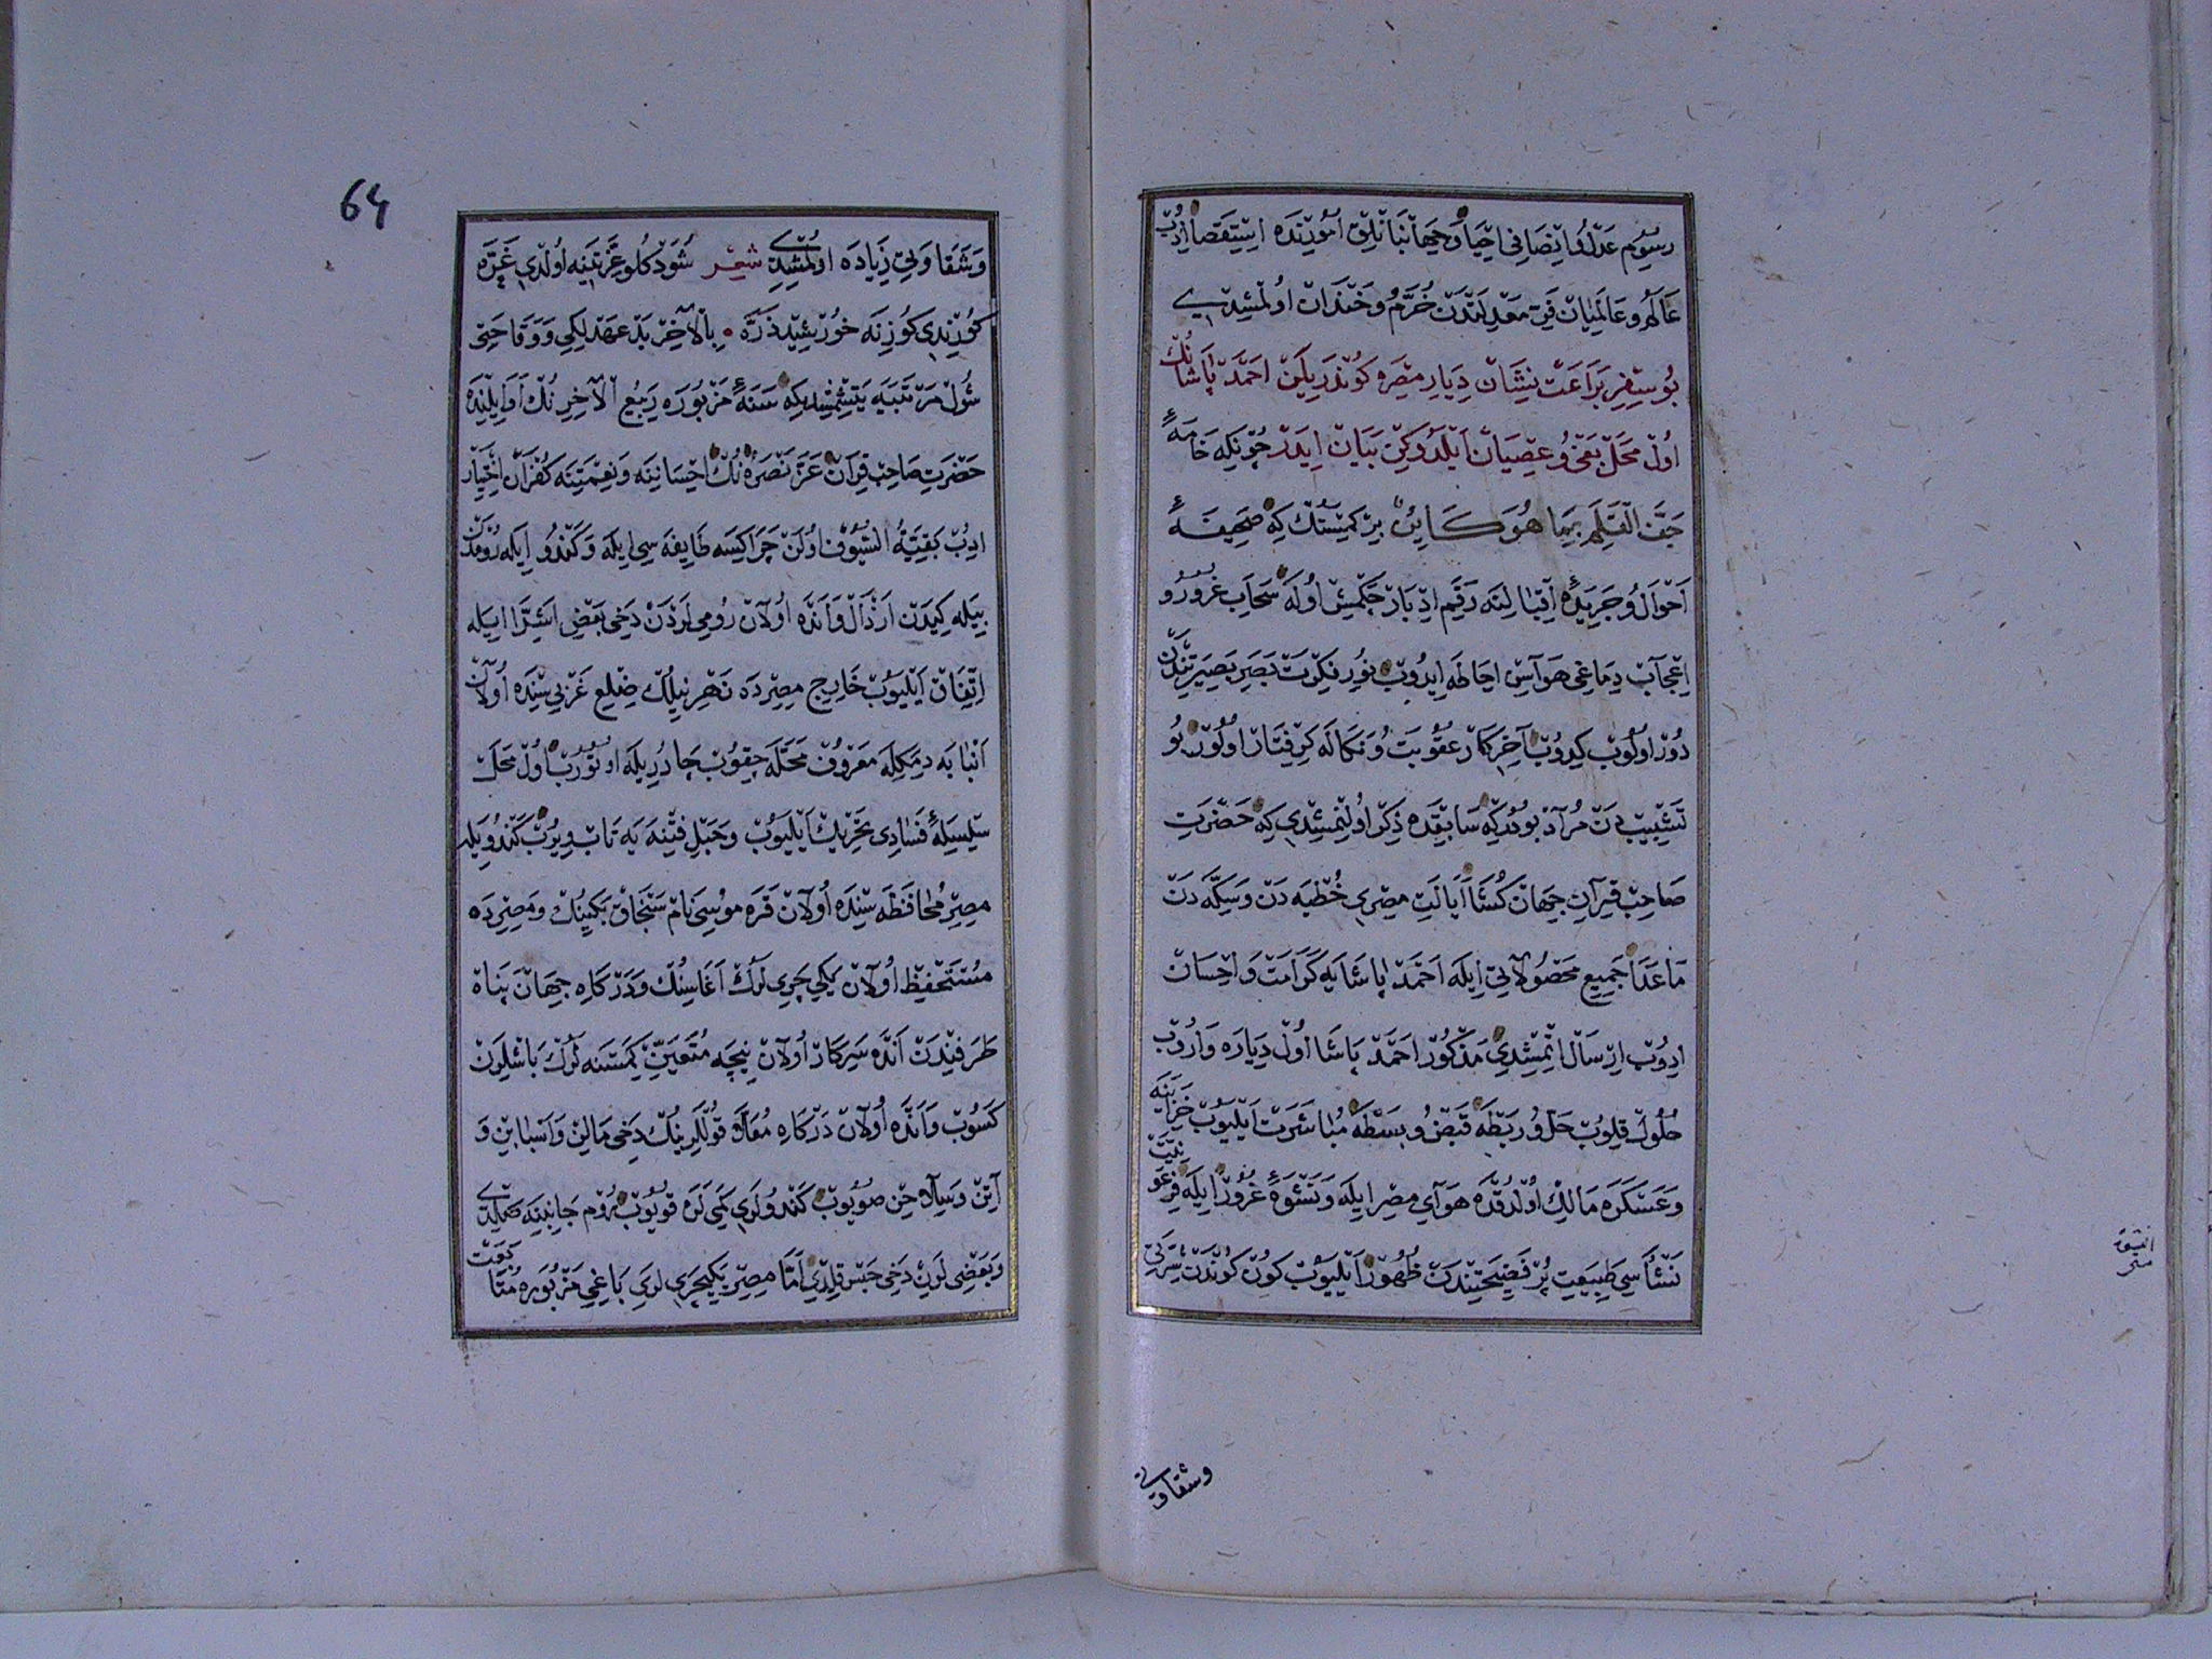 رسوم عدل و انصافی احیا و جهانبانلق امورنده استقصا ادوب
عالم و عالمیان فی معدلتدن خرم و خندان اولمشیدی
بو سفر براعت نشان دیار مصره کوندریلن احمد پاشانک
اول محل بغی و عصیان ایلدوکین بیان ایدر چونکه خامهٔ
جف القلم بما هو کاین بر کمسنک که صحیفهٔ
احوال و جریدهٔ اقبالنه رقم ادبار چکمیش اوله سحاب غرور و
اعجاب دماغی هواسن احاطه ایدوب نور فکرت بصر بصیرتندن
دور اولوب کیدوب آخر کار عقوبت و نکاله کرفتار اولور بو
تشبیبدن مراد بودرکه سابقده ذکر اولنمشیدی که حضرت
صاحب قران جهان کشا ایالت مصری خطبه دن و سکه دن
ماعدا جمیع محصولاتی ایله احمد پاشایه کرامت و احسان
ادوب ارسال اتمشیدی مذکور احمد پاشا اول دیاره واروب
حلول قلوب حل و ربطه قبض و بسطه مباشرت ایلیوب خزاینه
و عسکره مالک اولدقده هوای مصر ایله و نشوهٔ غرور ایله فرعونیت
نشأسی طبیعت پر فضیحتندن ظهور ایلیوب کون کوندن شرتی
وشقاوتی
64
و شقاوتی زیاده اولمشیدی شعر شو دکلو عزتنه اولدی غره
کورندی کوزنه خورشید ذره بالآخر بد عهدلکی و وقاحتی
شول مرتبیه یتشمشیدکه سنهٔ مزبوره ربیع الآخرنک اوایلنده
حضرت صاحب قران عز نصره نک احساننه و نعمتنه کفران اختیار
ادوب بقیة السیوف اولن چراکسه طایفه سی ایله و کندو ایله رومدن
بیله کیدن ارذال و انده اولان رومی لردن دخی بعض اشرا ایله
اتفاق ایلیوب خارج مصرده نهر نیلک ضلع غربی سنده اولان
انبابه دمکله معروف محله چقوب چادریله اوتوروب اول محل
سلسلهٔ فسادی تحریک ایلیوب و حبل فتنه یه تاب ویروب کندویله
مصر محافظه سنده اولان قره موسی نام سنجاق بکینک و مصرده
مستحفظ اولان یکیچری لرک اغاسنک و درکاه جهان پناه
طرفندن انده سرکار اولان نیچه متعین کمسنه لرک باشلرن
کسوب و انده اولان درکاه معلا قوللرینک دخی مالن و اسبابن و
آتن و سلاحن صویوب کندولری کمی لره قویوب روم جانبنه صالدی
و بعضی لرن دخی حبس قلدی اما مصر یکیچری لری باغی مزبوره متابعت